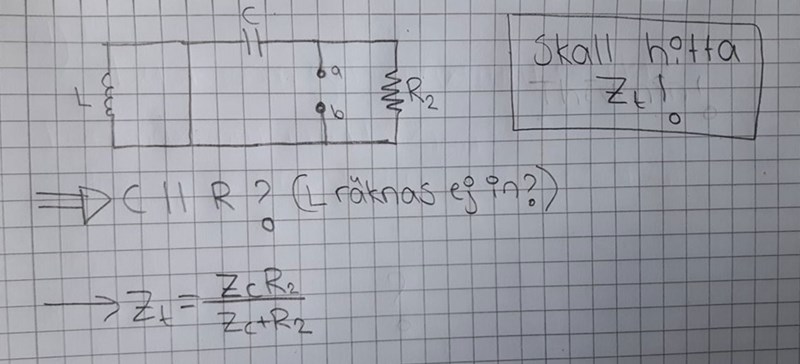 C
a
b
L
R₂
Skall hitta
Zₜ!
=> C || R? (L räknas ej in?)
→ Zₜ = Z_C R₂ / Z_C + R₂